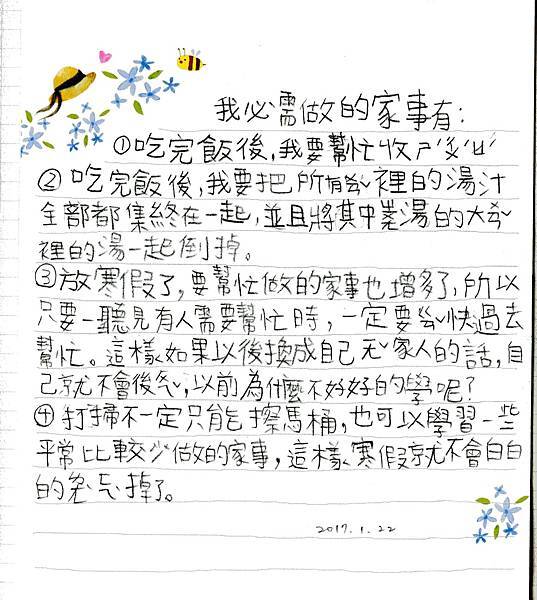 我必需做的家事有:
①吃完飯後,我要幫忙收ㄕˊ
②吃完飯後,我要把所有裡的湯汁
全部都集終在一起,並且將其中湯的大
裡的湯一起倒掉。
③放寒假了,要幫忙做的家事也增多了,所以
只要一聽見有人需要幫忙時,一定要快過去
幫忙。這樣如果以後換成自己家人的話,自
己就不會後,以前為什麼不好好的學呢?
④打掃不一定只能擦馬桶,也可以學習一些
平常比較少做的家事,這樣寒假就不會白白
的忘掉了。
2017.1.22